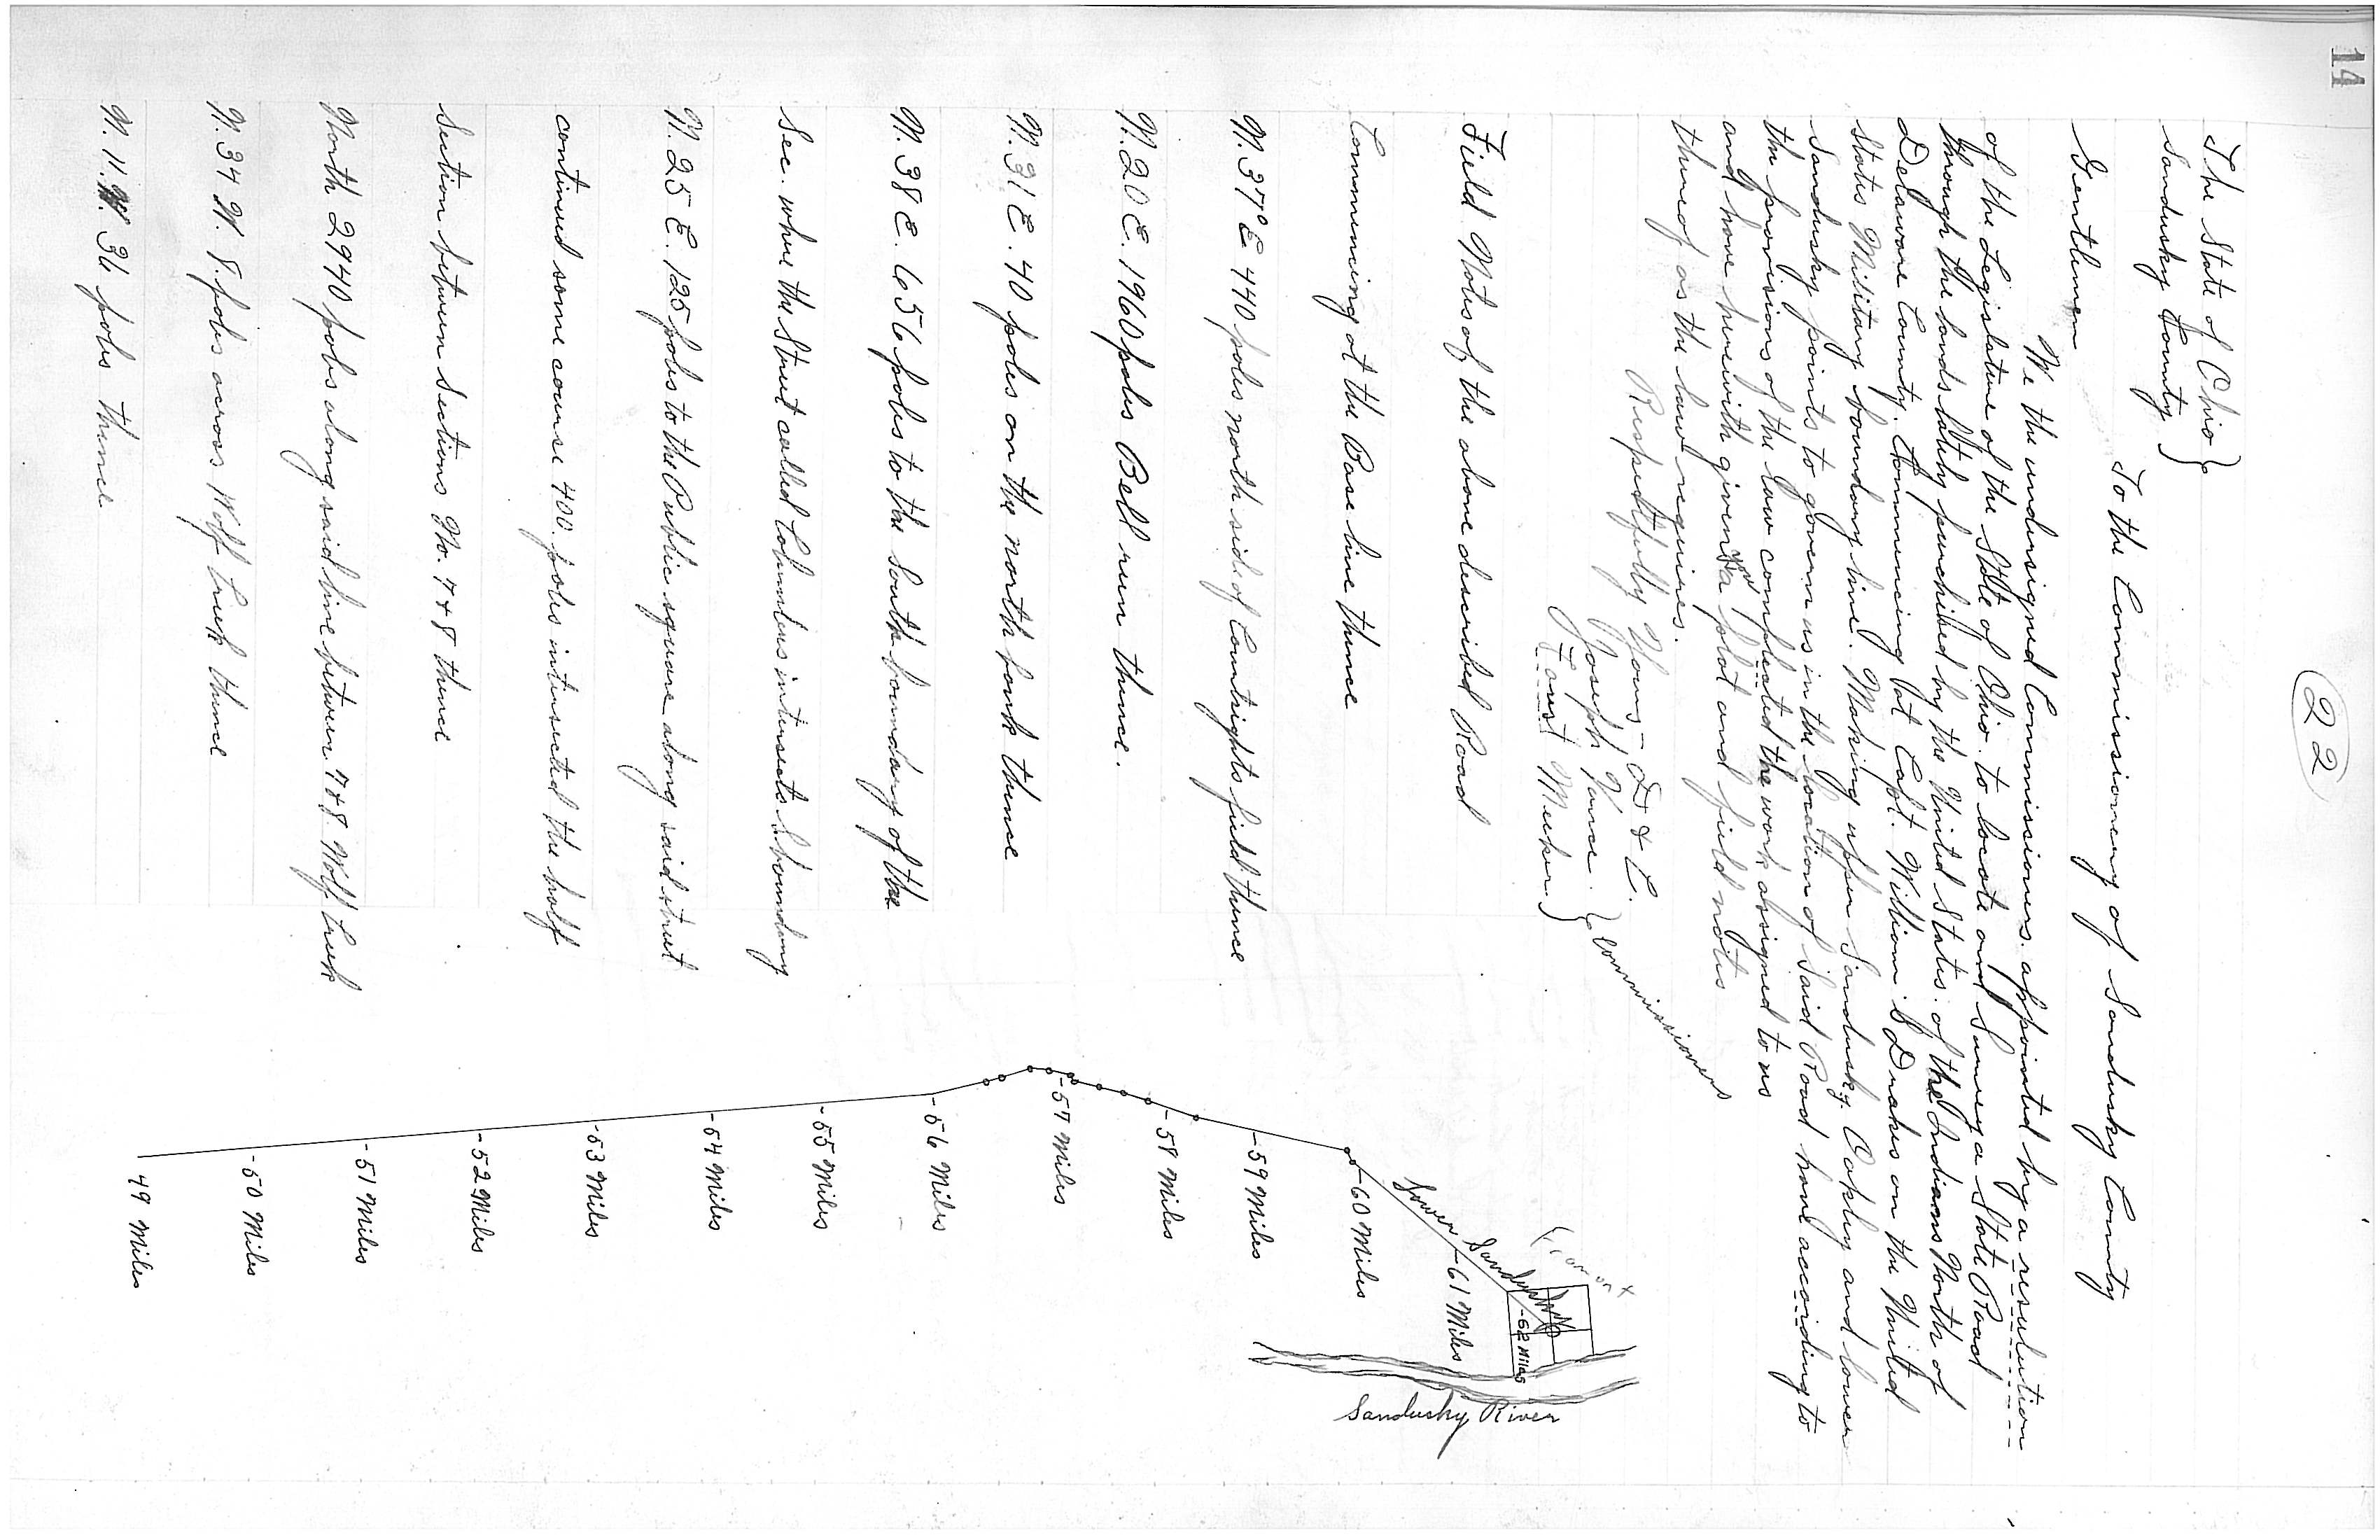 14
22
The State of Ohio }
Sandusky County }
To the Commissioners of Sandusky County
Gentlemen
We the undersigned Commissioners appointed by a resolution
of the Legislature of the State of Ohio. to locate and Survey a State Road
through the lands lately purchised by the United States. of the Indians North of
Delaware County. Commencing at Capt. William Drakes on the United
States Military boundary line. Making upper Sandusky. Oakley and lower
Sandusky points to govern us in the location of Said Road have according to
the provisions of the law compleated the work assigned to us
and have herewith given you a plot and field notes
thereof as the law requires.
Respectfully Yours
Joseph Vance }
Meeker } Commissioners
Field Notes of the above described Road
Commencing at the Base line thence
N. 37° E 440 poles north side of Courtrights field thence
N. 20 E. 1960 poles Bell run thence.
N. 31 E. 40 poles on the north bank thence
N. 38 E. 656 poles to the South boundary of the
Sec. where the Street called Columbus intersects S. boundary
N. 25 E. 125 poles to the Public square along said street
continued same course 400. poles intersected the half
Section between Sections No. 7 & 8 thence
North 2940 poles along said line between 7 & 8 Wolf Creek
N. 34 W. 8. poles across Wolf Creek thence
N. 11. W. 36 poles thence
Fremont
Lower Sandusky
-62 Miles
-61 Miles
-60 Miles
-59 Miles
-58 Miles
-57 Miles
-56 Miles
-55 Miles
-54 Miles
-53 Miles
-52 Miles
-51 Miles
-50 Miles
49 Miles
Sandusky River